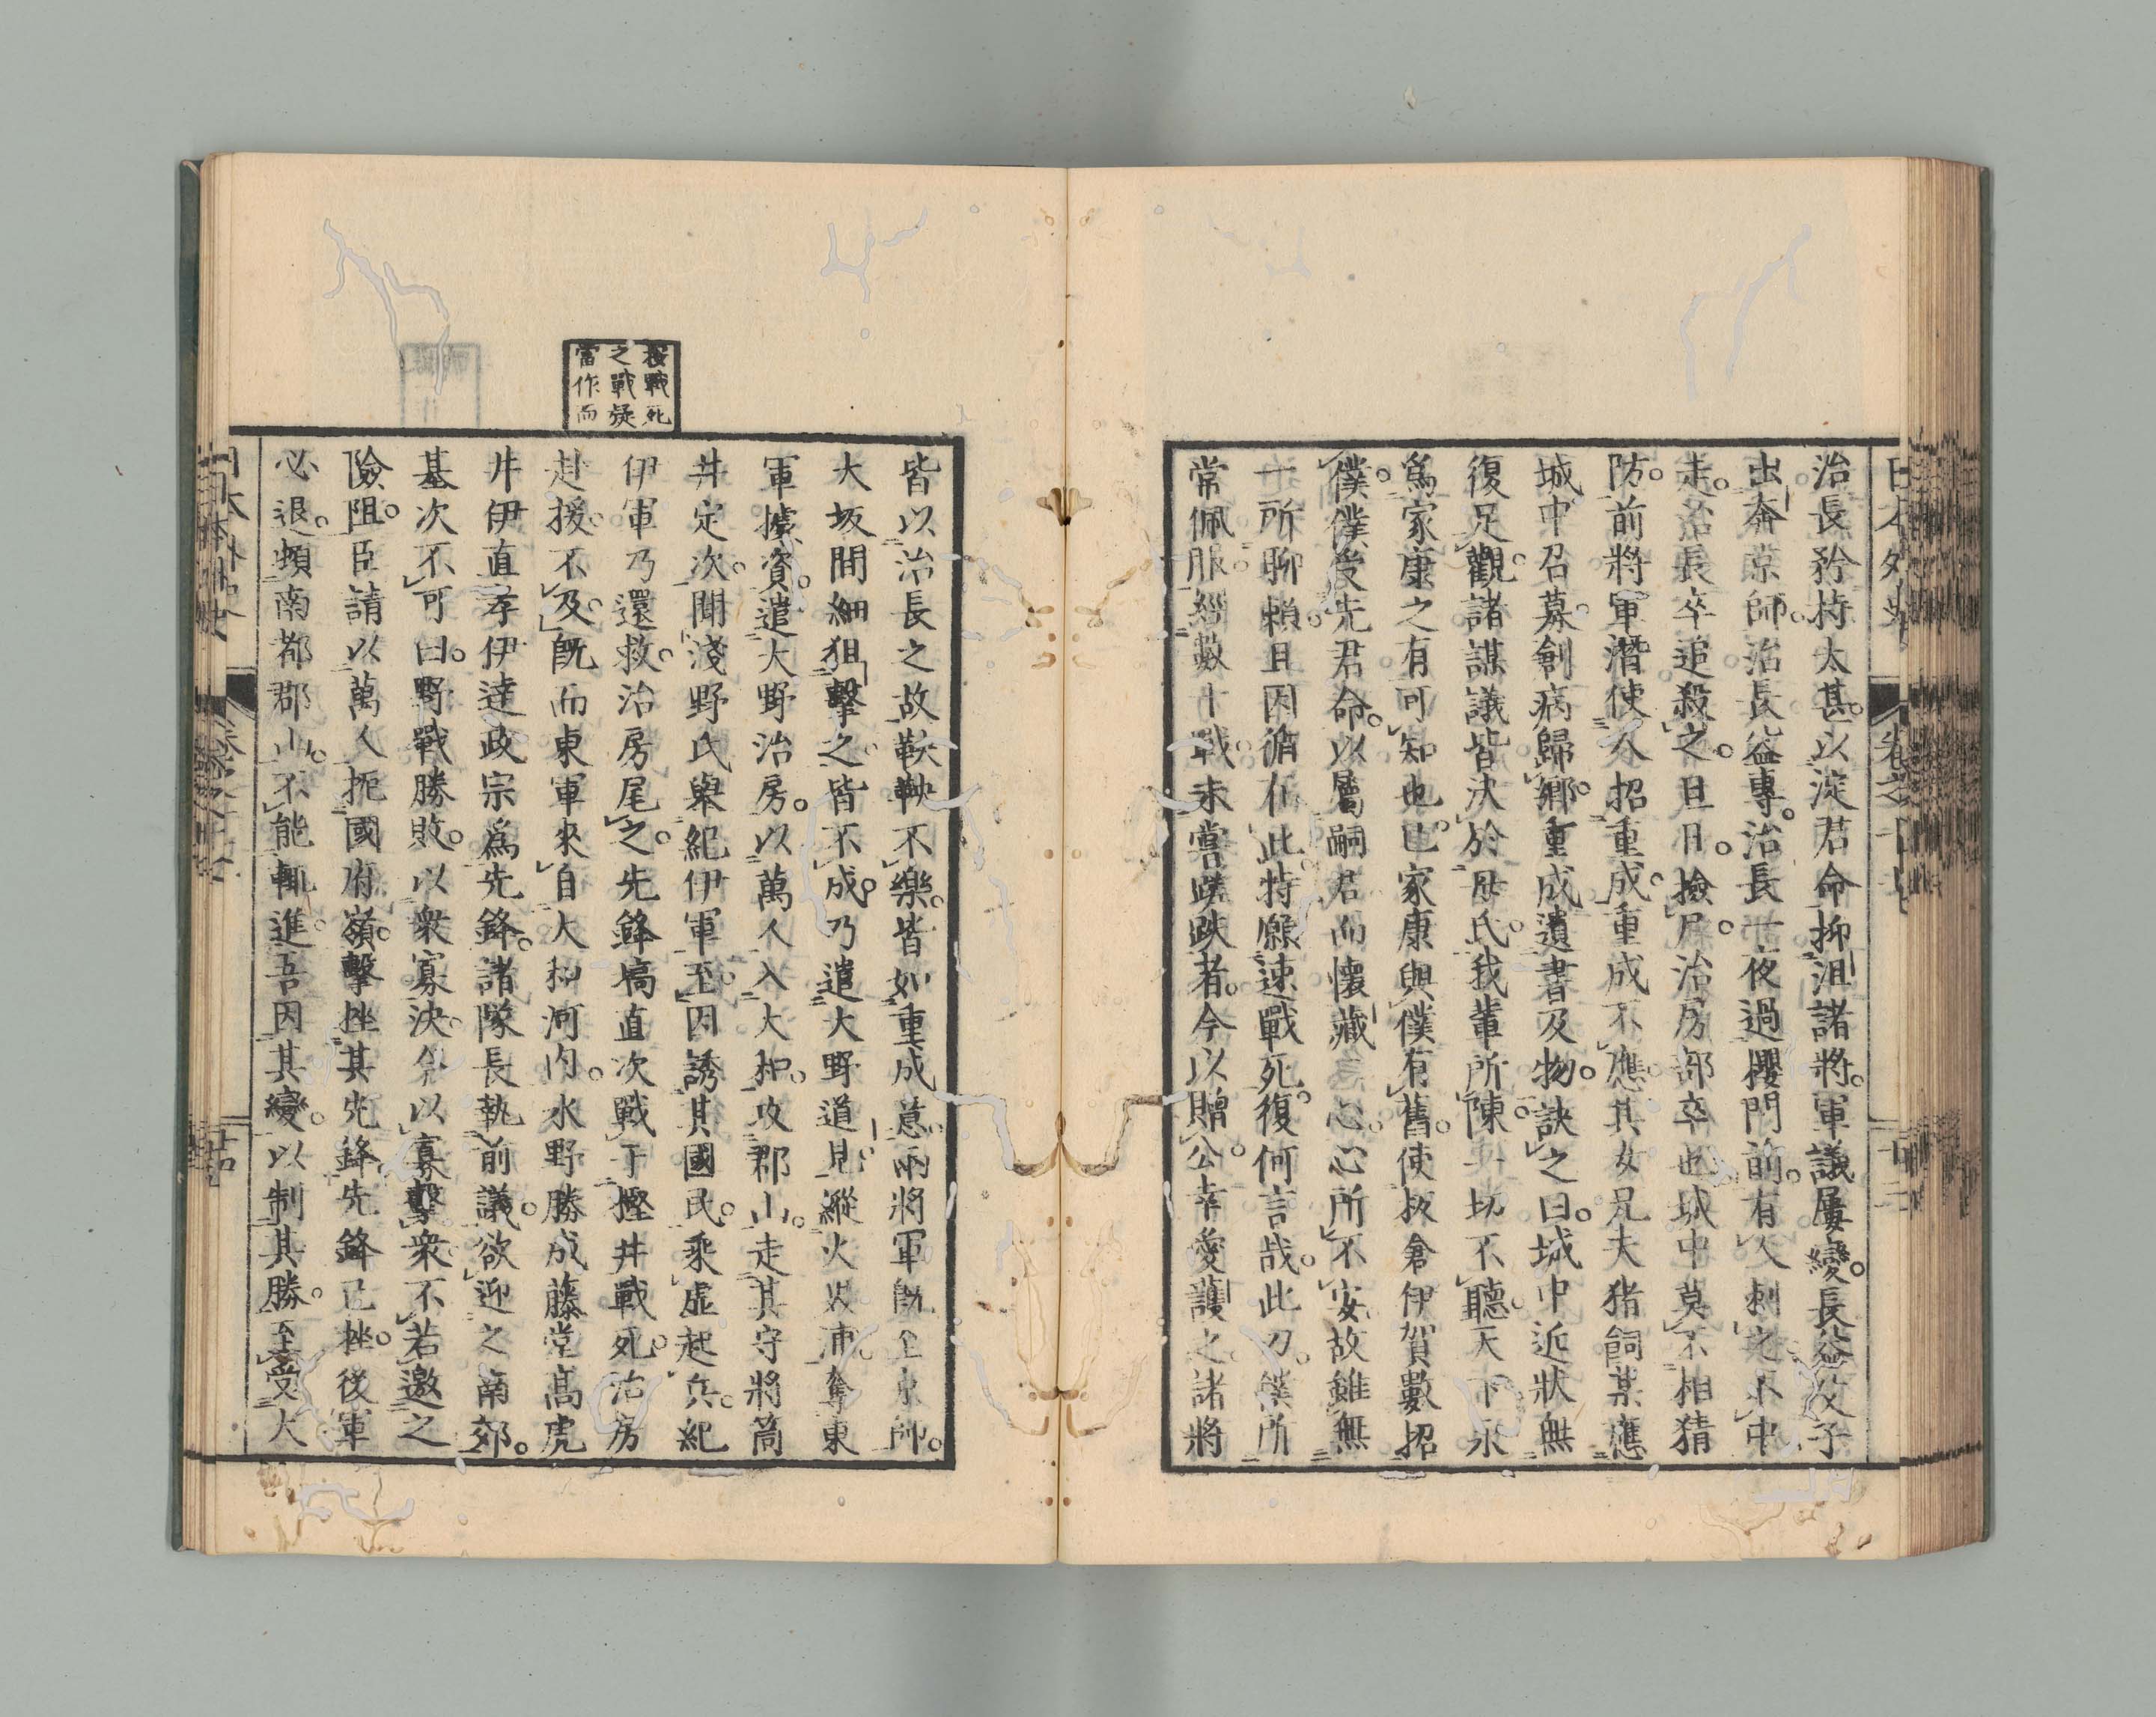 日本外史
卷之
十三
治長矜持太甚以淀君命抑沮諸將軍議屢變長益父子
出奔京師治長益專治長一夜過櫻門前有人刺之不中
走治長卒追殺之旦日撿尸治房部卒也城中莫不相猜
防前將軍潛使人招重成重成不應其女兄夫猪飼某應
城中召募創病歸鄉重成遺書及物訣之曰城中近狀無
復足觀諸謀議皆決於母氏我輩所陳一切不聽天下永
爲家康之有可知也已家康與僕有舊使板倉伊賀數招
僕僕受先君命以屬嗣君而懷藏焉心心所不安故雖無
一所聊賴且因循在此特願速戰死復何言哉此刀僕所
常佩服經數十戰未嘗蹉跌者今以贈公幸愛護之諸將
皆以治長之故鞅鞅不樂皆如重成意兩將軍既至京師
大坂間細狙擊之皆不成乃遣大野道見縱火堺浦奪東
軍據資遣大野治房以萬人入大和攻郡山走其守將筒
井定次聞淺野氏與紀伊軍至因誘其國民乘虛起兵紀
伊軍乃還救治房尾之先鋒塙直次戰于樫井戰死治房
赴援不及既而東軍來自大和河內水野勝成藤堂高虎
井伊直孝伊達政宗爲先鋒諸隊長執前議欲迎之南郊
基次不可曰野戰勝敗以衆寡決今以寡擊衆不若邀之
險阻臣請以萬人扼國府嶺擊挫其先鋒先鋒已挫後軍
必退頓南都郡山不能輒進吾因其變以制其勝至受大
按戰死
之戰疑
當作而